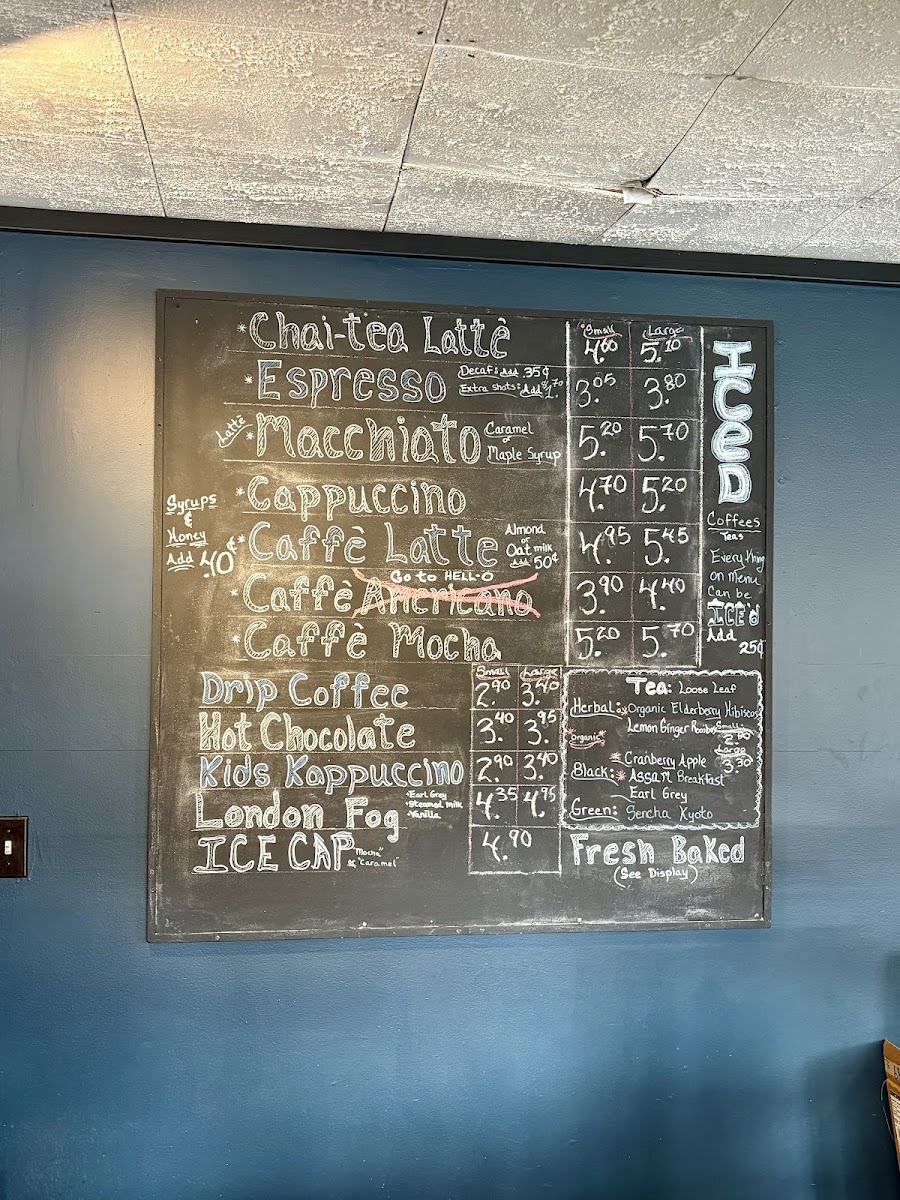 *Chai-tea Lattè
Small Large
4.60 5.10
*Espresso
Decaf: Add .35¢
Extra shots: Add $1.70
3.05 3.80
Lattè *Macchiato
Caramel
or
Maple Syrup
5.20 5.70
*Cappuccino
4.70 5.20
Syrups
&
Honey
Add .40¢
*Caffè Latte
Almond
or
Oat milk
Add 50¢
4.95 5.45
Go to HELL-O
*Caffè Americano
3.90 4.40
*Caffè Mocha
5.20 5.70
ICeD
Coffees
Teas
Everything
on menu
Can be
ICE'd
Add
25¢
Small Large
Drip Coffee
2.90 3.40
Hot Chocolate
3.40 3.95
Kids Kappuccino
2.90 3.40
London Fog
•Earl Grey
•Steamed milk
•Vanilla
4.35 4.95
ICE CAP
"Mocha"
& "Caramel"
4.90
Tea: Loose Leaf
Herbal: *Organic Elderberry Hibiscus
Lemon Ginger Rooibos
*organic*
Small
2.80
Large
3.30
*Cranberry Apple
Black: *Assam Breakfast
Earl Grey
Green: Sencha Kyoto
Fresh Baked
(See Display)